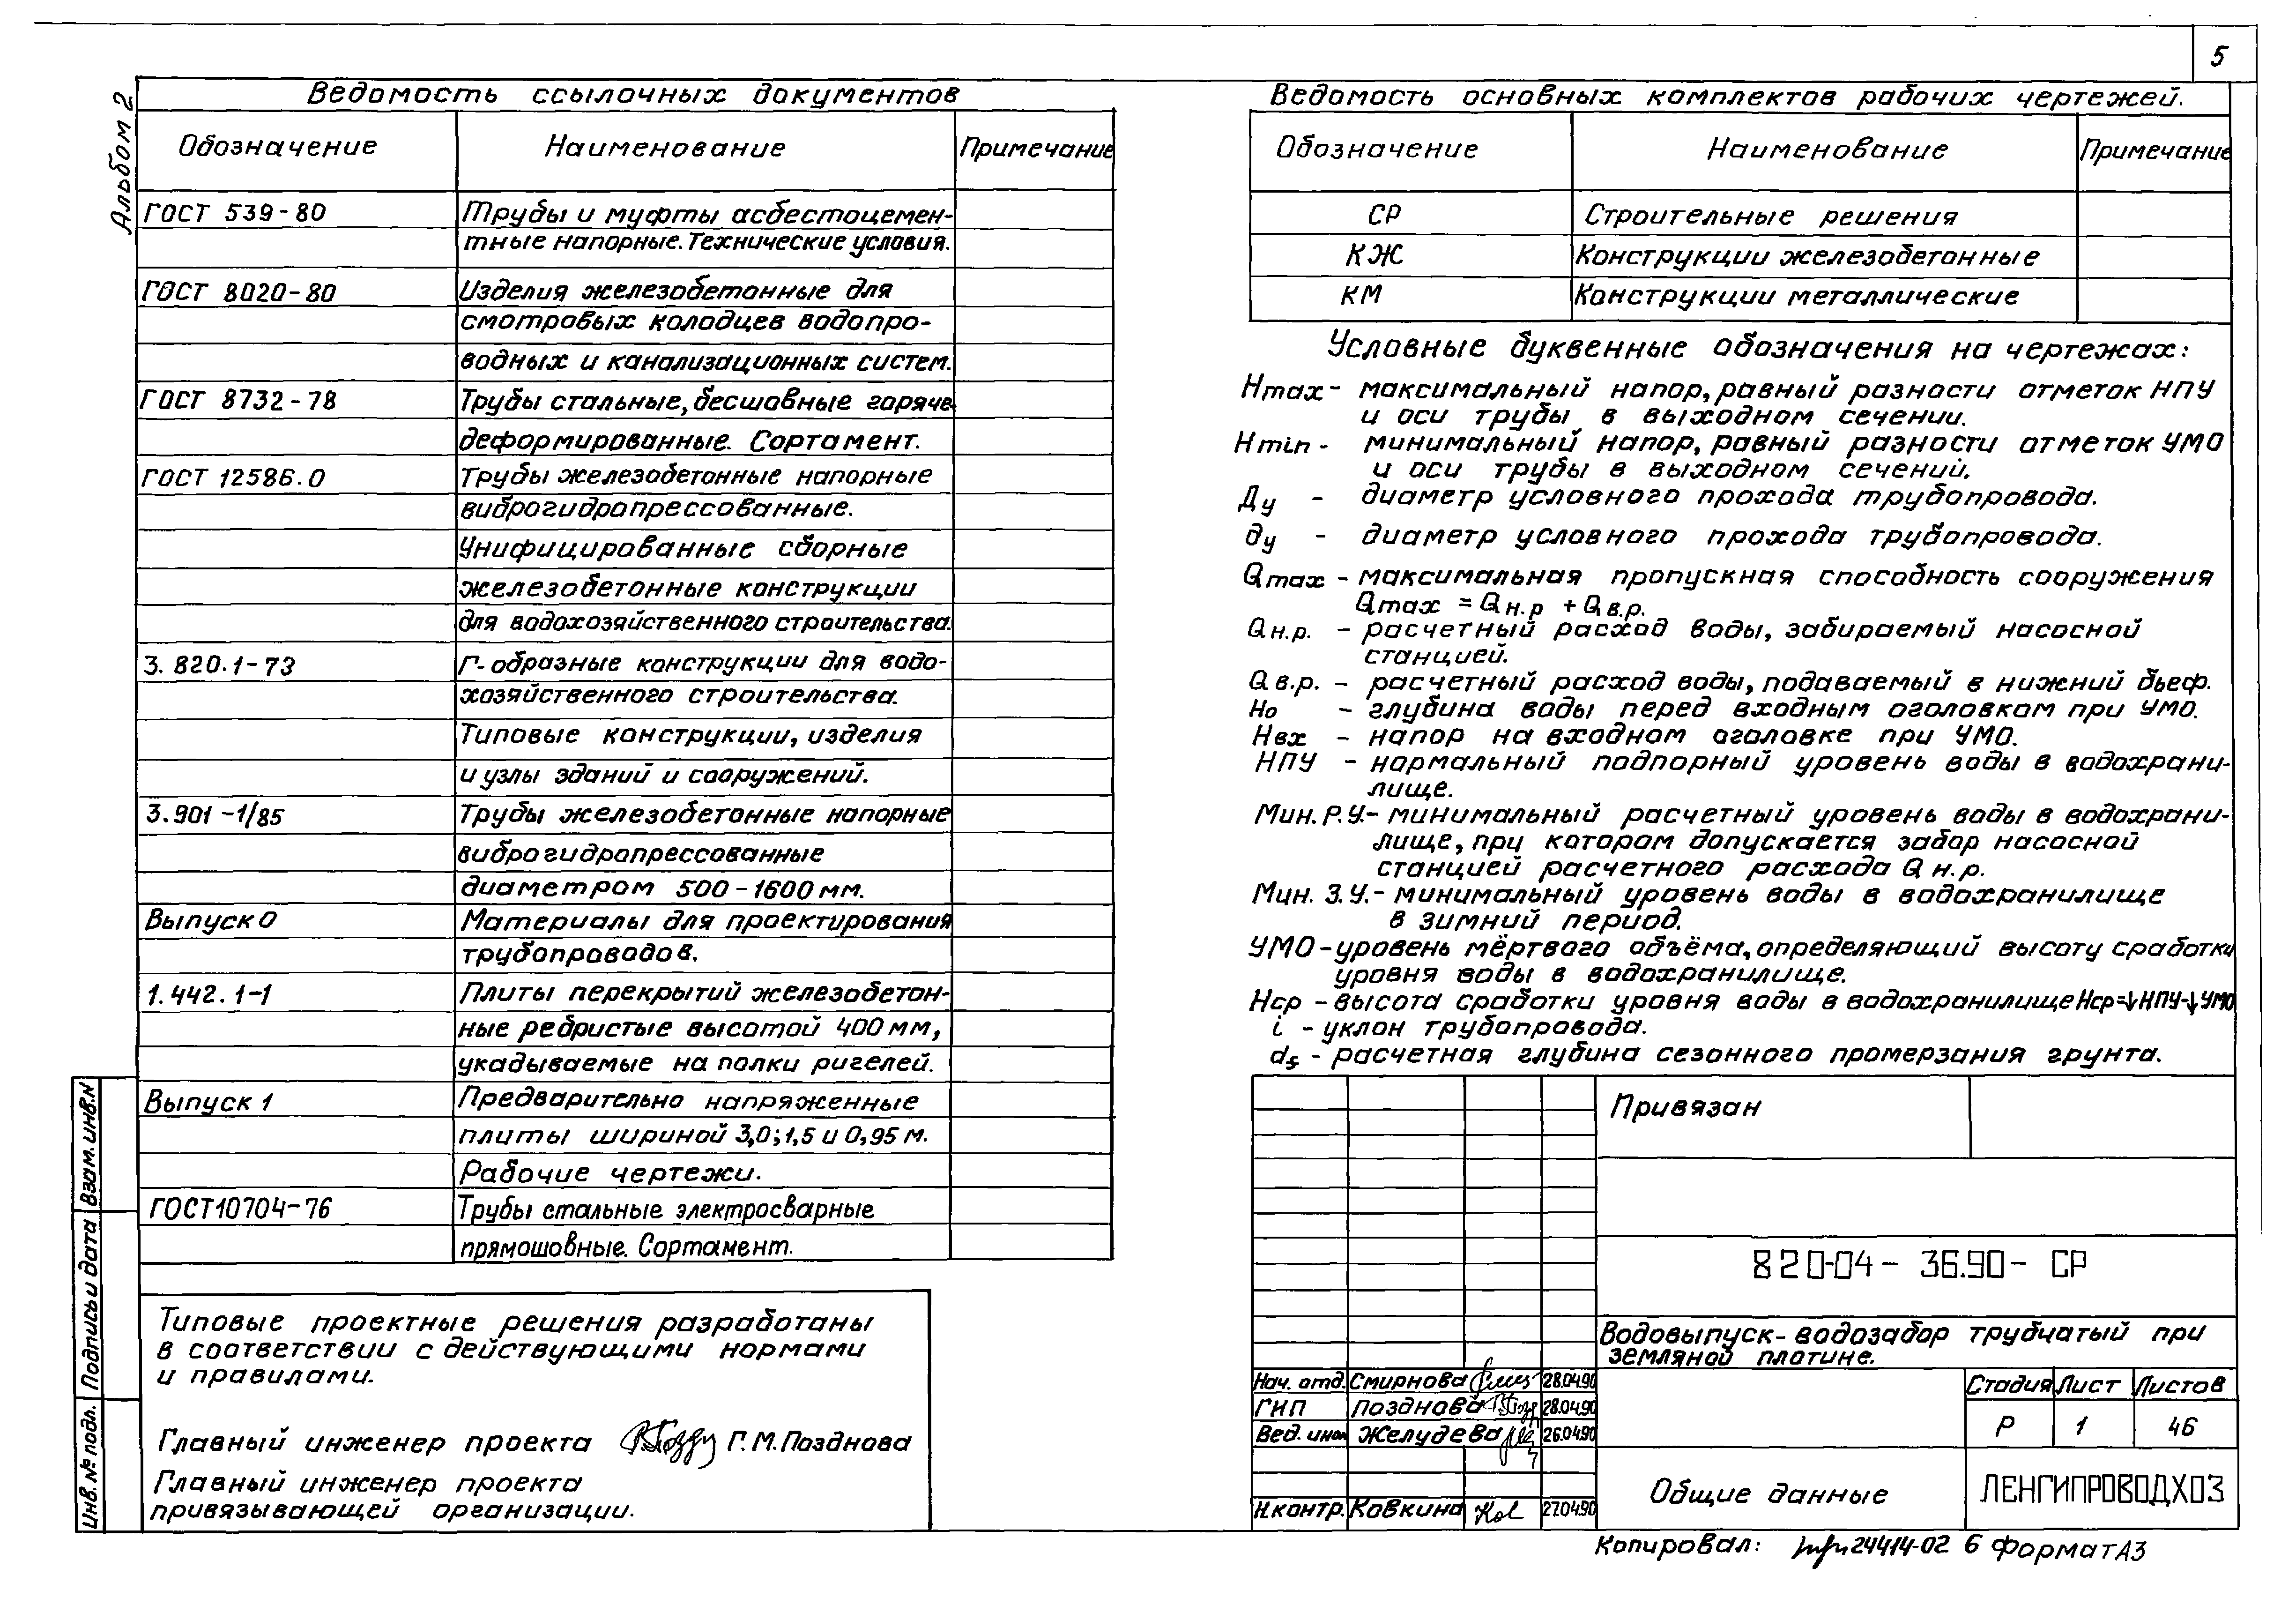 5
Альбом 2
Ведомость ссылочных документов
Обозначение Наименование Примечание
ГОСТ 539-80 Трубы и муфты асбестоцемен-
тные напорные. Технические условия.
ГОСТ 8020-80 Изделия железобетонные для
смотровых колодцев водопро-
водных и канализационных систем.
ГОСТ 8732-78 Трубы стальные, бесшовные горяче-
деформированные. Сортамент.
ГОСТ 12586.0 Трубы железобетонные напорные
виброгидропрессованные.
Унифицированные сборные
железобетонные конструкции
для водохозяйственного строительства.
3.820.1-73 Г-образные конструкции для водо-
хозяйственного строительства.
Типовые конструкции, изделия
и узлы зданий и сооружений.
3.901-1/85 Трубы железобетонные напорные
виброгидропрессованные
диаметром 500-1600 мм.
Выпуск 0 Материалы для проектирования
трубопроводов.
1.442.1-1 Плиты перекрытий железобетон-
ные ребристые высотой 400 мм,
укадываемые на полки ригелей.
Выпуск 1 Предварительно напряженные
плиты шириной 3,0; 1,5 и 0,95 м.
Рабочие чертежи.
ГОСТ 10704-76 Трубы стальные электросварные
прямошовные. Сортамент.
Типовые проектные решения разработаны
в соответствии с действующими нормами
и правилами.
Главный инженер проекта Г.М.Позднова
Главный инженер проекта
привязывающей организации.
Взам. инв. N
Подпись и дата
Инв. № подл.
Ведомость основных комплектов рабочих чертежей.
Обозначение Наименование Примечание
СР Строительные решения
КЖ Конструкции железобетонные
КМ Конструкции металлические
Условные буквенные обозначения на чертежах:
Hmax - максимальный напор, равный разности отметок НПУ
и оси трубы в выходном сечении.
Hmin - минимальный напор, равный разности отметок УМО
и оси трубы в выходном сечений.
Ду - диаметр условного прохода трубопровода.
ду - диаметр условного прохода трубопровода.
Qmax - максимальная пропускная способность сооружения
Qmax = Qн.р + Qв.р.
Qн.р. - расчетный расход воды, забираемый насосной
станцией.
Qв.р. - расчетный расход воды, подаваемый в нижний бьеф.
Но - глубина воды перед входным оголовком при УМО.
Нвх - напор на входном оголовке при УМО.
НПУ - нормальный подпорный уровень воды в водохрани-
лище.
Мин. Р.У. - минимальный расчетный уровень воды в водохрани-
лище, при котором допускается забор насосной
станцией расчетного расхода Qн.р.
Мин. З.У. - минимальный уровень воды в водохранилище
в зимний период.
УМО - уровень мёртвого объёма, определяющий высоту сработки
уровня воды в водохранилище.
Нср - высота сработки уровня воды в водохранилище Нср=↓НПУ-↓УМО
i - уклон трубопровода.
df - расчетная глубина сезонного промерзания грунта.
Привязан
820-04-36.90-СР
Водовыпуск-водозабор трубчатый при
земляной плотине.
Нач. отд. Смирнова 28.04.90
ГИП Позднова 28.04.90
Вед. инж. Желудева 26.04.90
Н.контр. Ковкина 27.04.90
Стадия Лист Листов
Р 1 46
Общие данные
ЛЕНГИПРОВОДХОЗ
Копировал: 24414-02 6 Формат А3